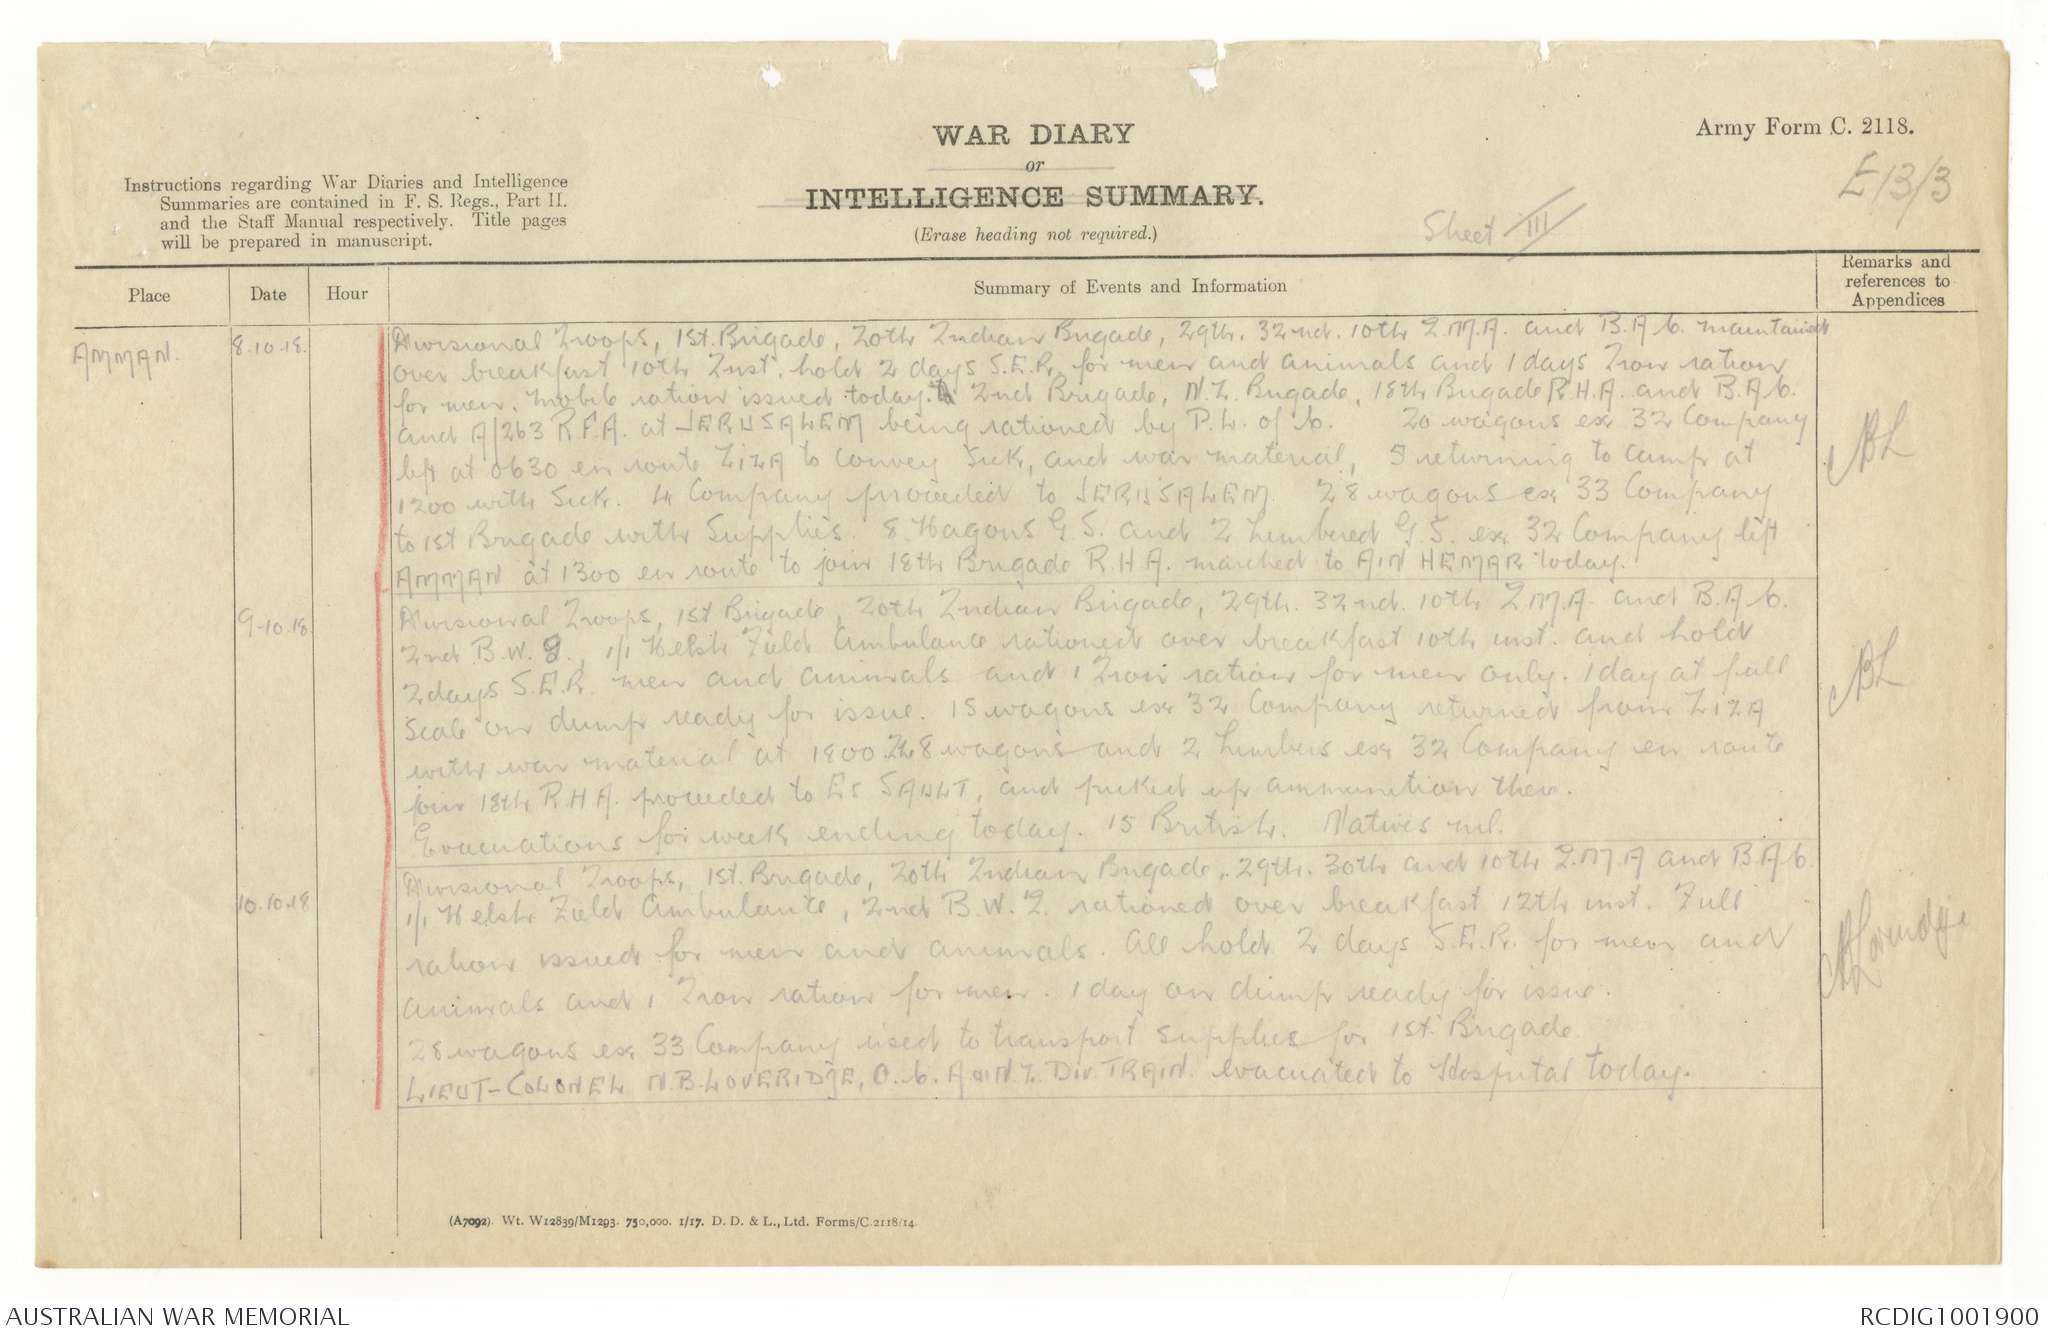 WAR DIARY
or
INTELLIGENCE SUMMARY.
(Erase heading not required.)
Army Form C. 2118.
E 13/3
Sheet III
Instructions regarding War Diaries and Intelligence
Summaries are contained in F. S. Regs., Part II.
and the Staff Manual respectively. Title pages
will be prepared in manuscript.
Place
Date
Hour
Summary of Events and Information
Remarks and
references to
Appendices
AMMAN.
8.10.18.
Divisional Troops, 1st. Brigade, 20th Indian Brigade, 29th. 32nd. 10th I.M.A. and B.A.C. maintained
over breakfast 10th Inst. hold 2 days S.E.R. for men and animals and 1 days Iron ration
for men. Mobile ration issued today. 2nd Brigade, N.Z. Brigade, 18th Brigade R.H.A. and B.A.C.
and A/263 R.F.A. at JERUSALEM being rationed by P.L. of C. 20 wagons ex 32 Company
left at 0630 en route ZIZA to convey Sick, and war material, 5 returning to camp at
1200 with Sick. 4 Company proceeded to JERUSALEM. 28 wagons ex 33 Company
to 1st Brigade with Supplies. 8 Wagons G.S. and 2 Limbered G.S. ex 32 Company left
AMMAN at 1300 en route to join 18th Brigade R.H.A. marched to AIN HEMAR today.
9.10.18.
Divisional Troops, 1st Brigade, 20th Indian Brigade, 29th. 32nd. 10th I.M.A. and B.A.C.
2nd B.W.I., 1/1 Welsh Field Ambulance rationed over breakfast 10th inst. and hold
2 days S.E.R. men and animals and 1 Iron ration for men only. 1 day at full
scale on dump ready for issue. 15 wagons ex 32 Company returned from ZIZA
with war material at 1800. 8 wagons and 2 Limbers ex 32 Company en route
join 18th R.H.A. proceeded to ES SAULT, and picked up ammunition there.
Evacuations for week ending today. 15 British. Natives nil.
10.10.18
Divisional Troops, 1st. Brigade, 20th Indian Brigade, 29th. 30th and 10th I.M.A and B.A.C
1/1 Welsh Field Ambulance, 2nd B.W.I. rationed over breakfast 12th inst. Full
ration issued for men and animals. All hold 2 days S.E.R. for men and
animals and 1 Iron ration for men. 1 day on dump ready for issue.
28 wagons ex 33 Company used to transport supplies for 1st. Brigade.
LIEUT-COLONEL N.B. LOVERIDGE, O.C. A & N.Z. DIV. TRAIN. evacuated to Hospital today.
NBL
NBL
NBLoveridge
(A7092). Wt. W12839/M1293. 750,000. 1/17. D. D. & L., Ltd. Forms/C.2118/14.
AUSTRALIAN WAR MEMORIAL
RCDIG1001900